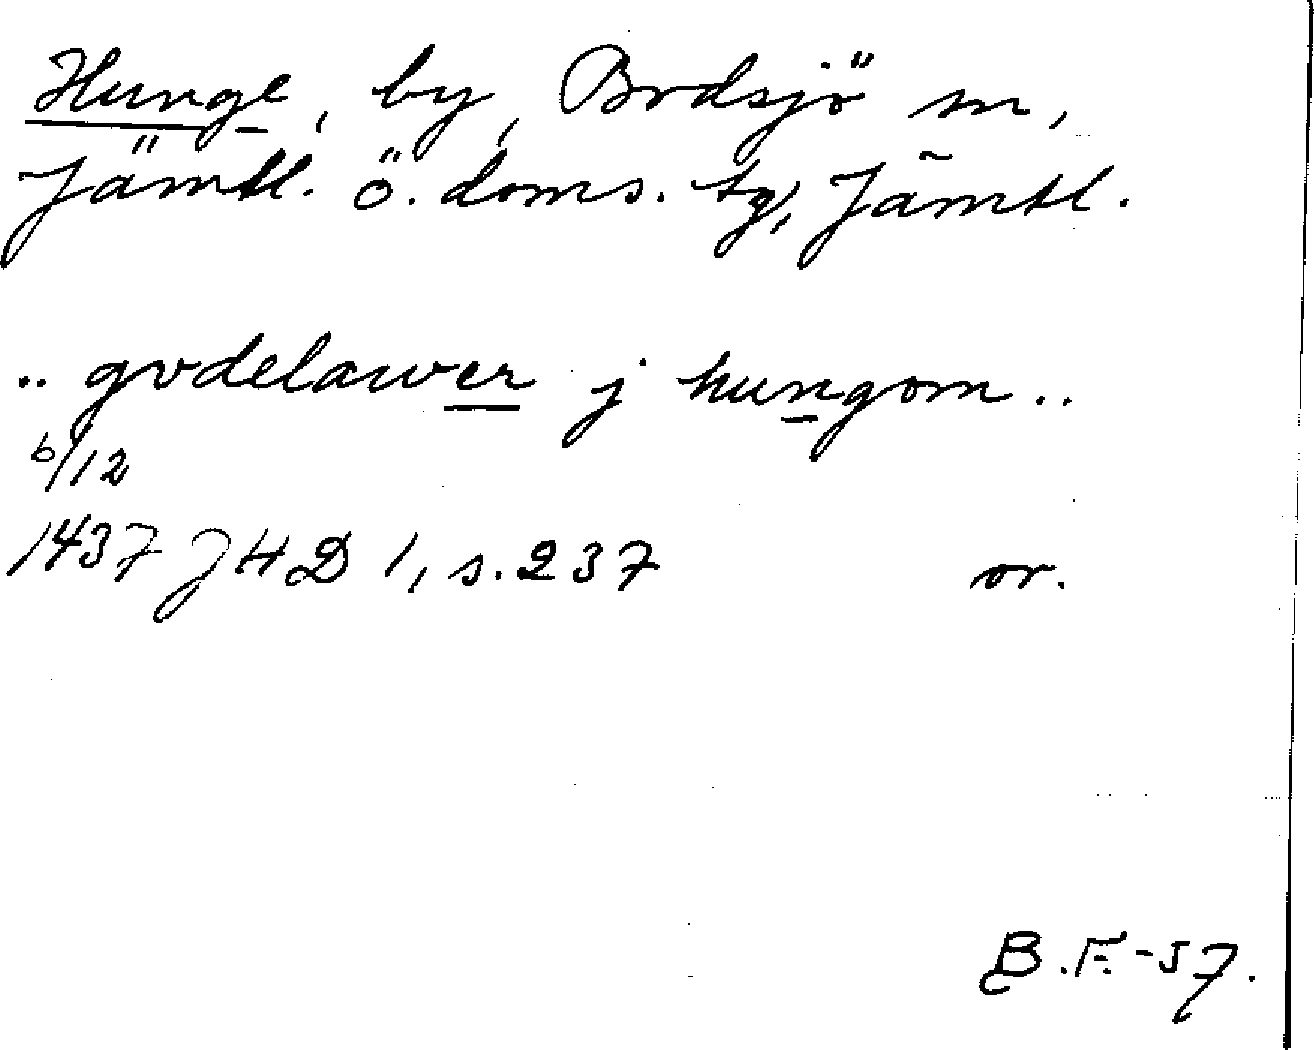 Hunge, by, Bodsjö sn,
Jämtl. ö. doms. tg, Jämtl.
.. godelawer j hungom ..
6/12
1437 JHD 1, s. 237 or.
B.F.-57.